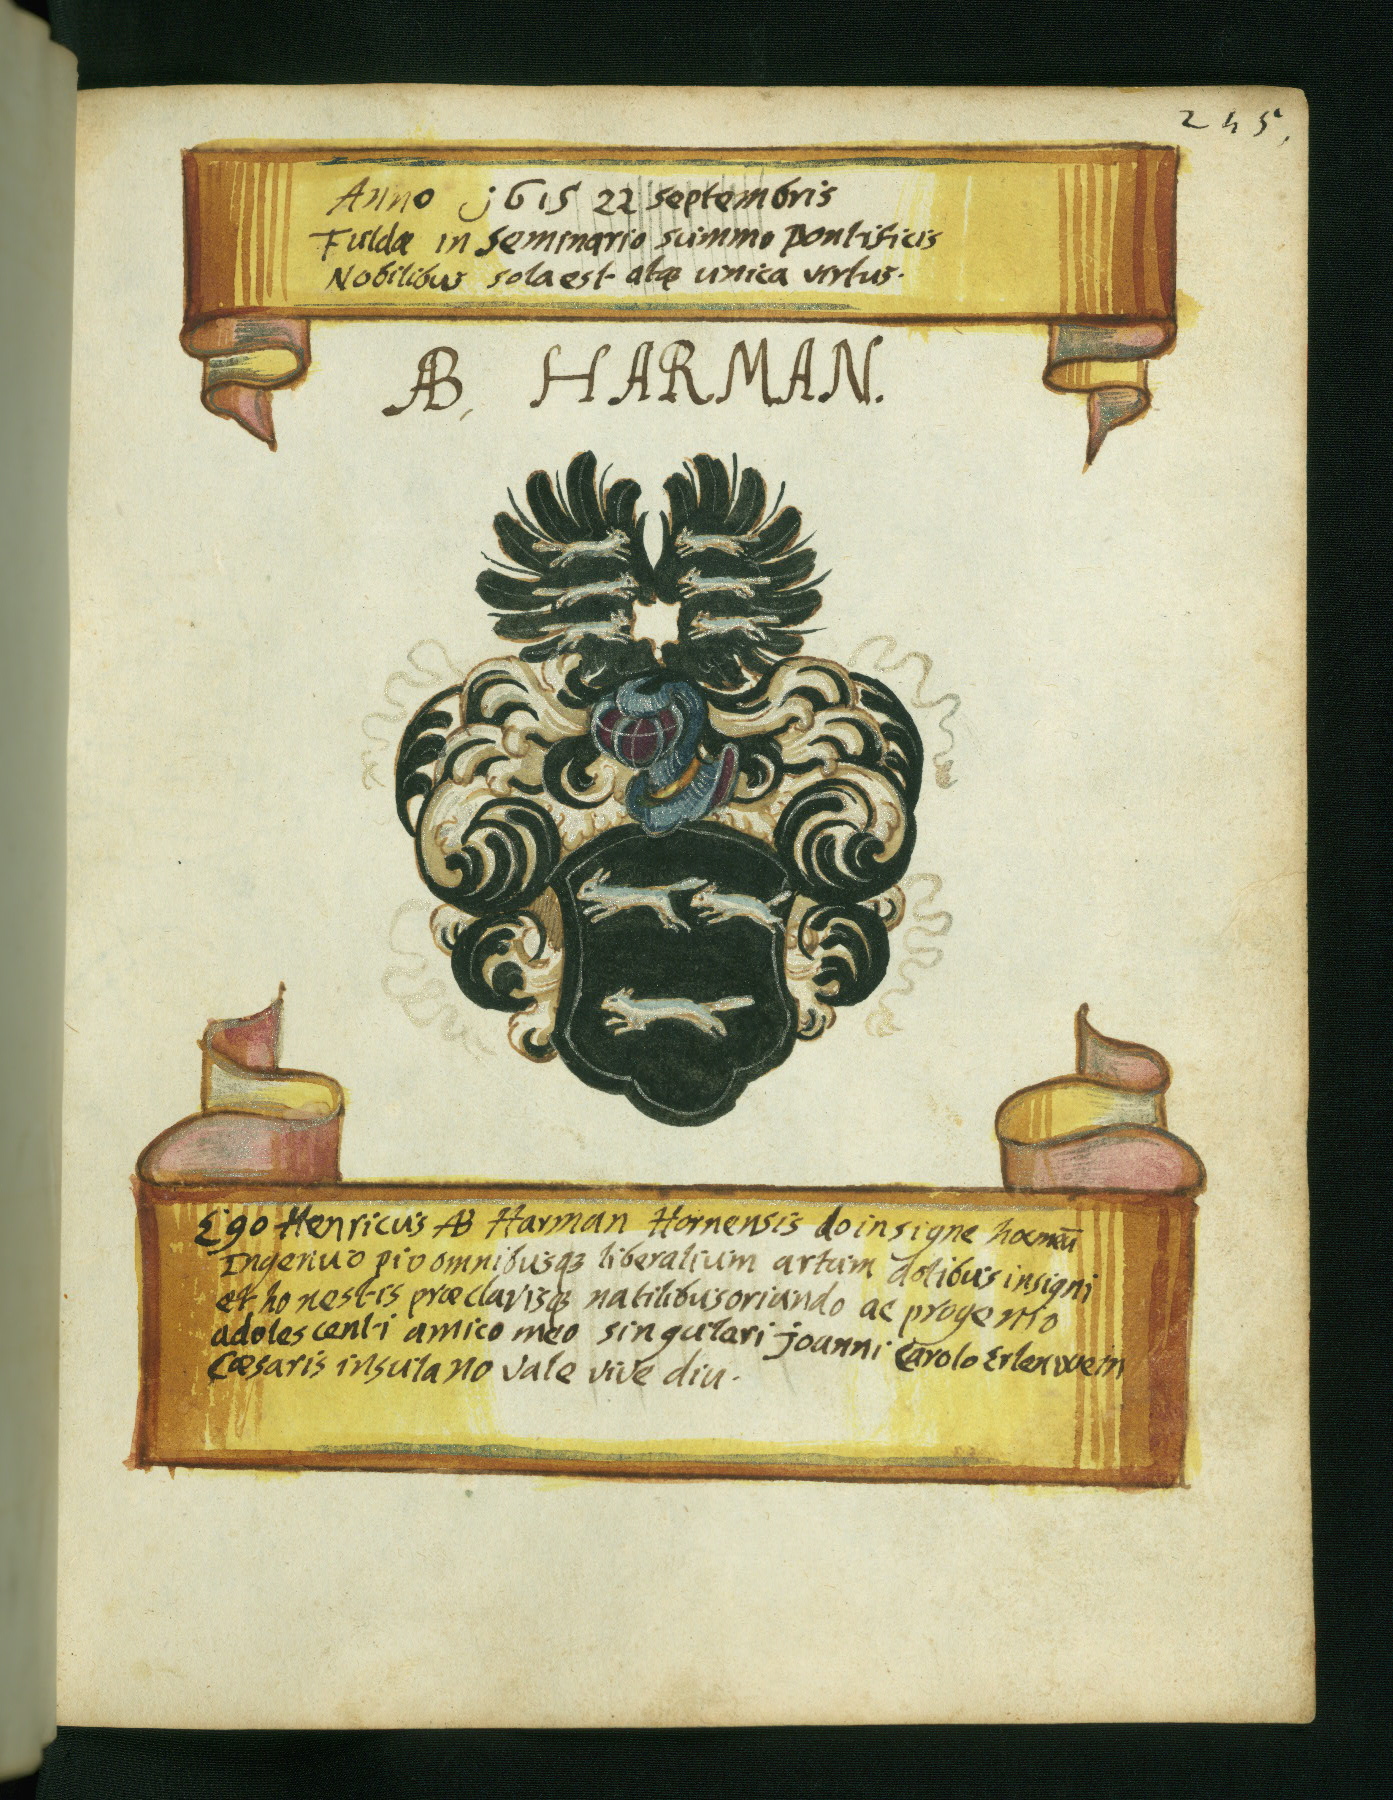 245.
Anno j615 22 septembris
Fuldæ in seminario summo pontificis
Nobilibus sola est atq; unica virtus.
AB, HARMAN.
Ego Henricus AB Harman Hornensis do insigne hoc meū
Ingenuo pio omnibusq; liberalium artum dotibus insigni
et honestis præclarisq; natilibus oriundo ac progenito
adolescenti amico meo singulari joanni Carolo Erlenwein
Cæsaris insulano vale vive diu.